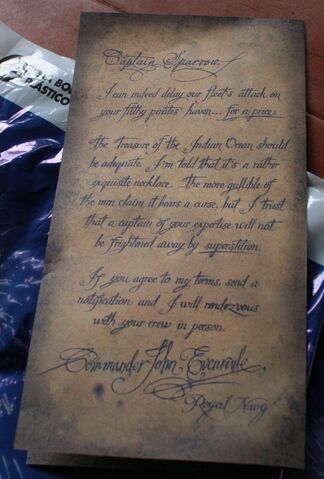 Captain Sparrow,
I can indeed delay our fleet's attack on
your filthy pirates' haven... for a price.
the treasure of the Indian Ocean should
be adequate. I'm told that it's a rather
exquisite necklace. The more gullible of
the men claim it bears a curse, but I trust
that a captain of your expertise will not
be frightened away by superstition.
If you agree to my terms, send a
notification and I will rendezvous
with your crew in person.
Commander John
Royal Navy
PLASTICO